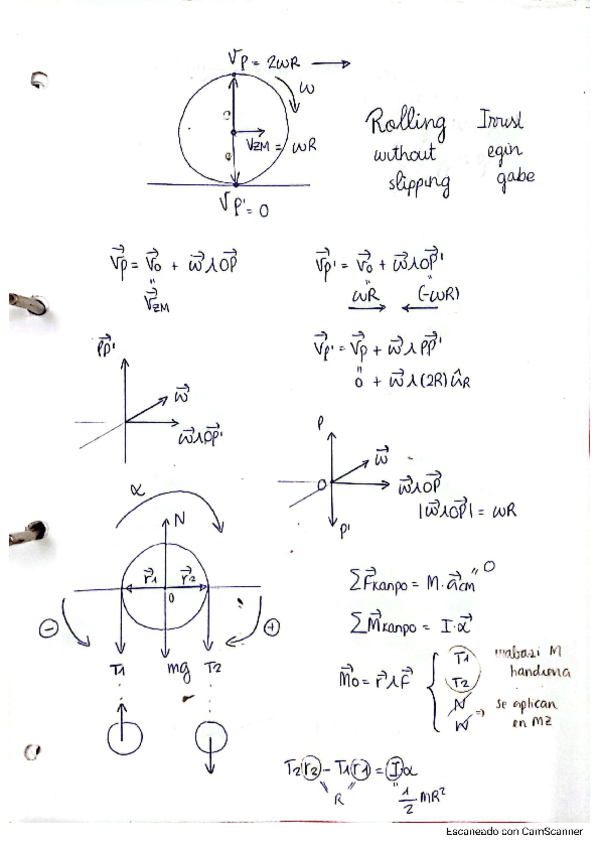 VP = 2ωR →
ω
VZM = ωR
VP' = 0
Rolling Irrist
without egin
slipping gabe
V⃗P = V⃗O + ω⃗ ∧ OP⃗
"
V⃗ZM
V⃗P' = V⃗O + ω⃗ ∧ OP⃗'
" "
ωR (-ωR)
V⃗P' = V⃗P + ω⃗ ∧ PP⃗'
"
0 + ω⃗ ∧ (2R) ûR
PP⃗'
ω⃗
ω⃗ ∧ OP⃗'
P
O
ω⃗
ω⃗ ∧ OP⃗
|ω⃗ ∧ OP⃗| = ωR
P'
α
N
r⃗1 r⃗2
O
⊖ ⊕
T1 mg T2
ΣF⃗kanpo = M · a⃗cm " 0
ΣM⃗kanpo = I · α⃗
M⃗O = r⃗ ∧ F⃗ {
T1
T2
N
W
M
handiena
⇒ se aplican
en MZ
T2 r2 - T1 r1 = I α
R
"
1/2 MR²
Escaneado con CamScanner